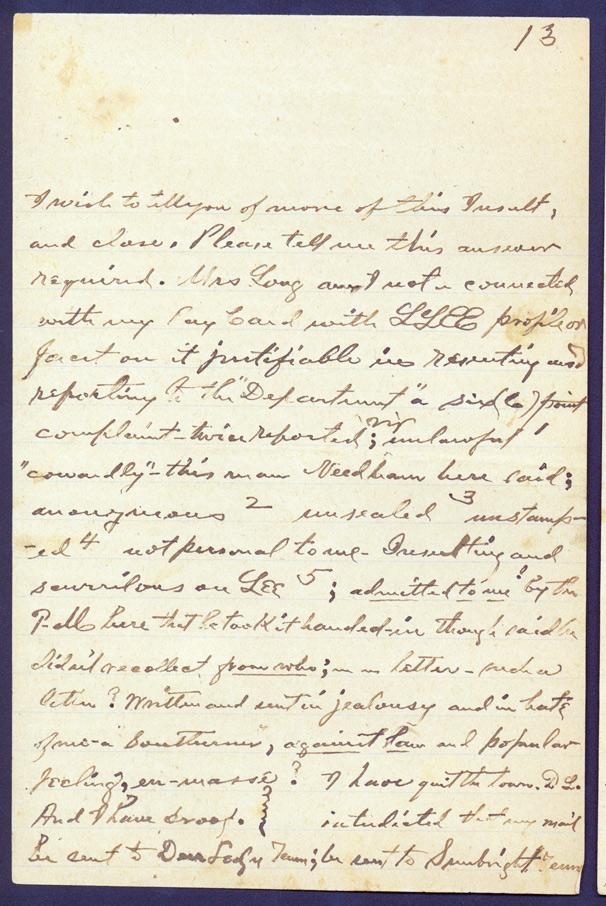 13
I wish to tell you of more of this Insult,
and close. Please tell me this answer
required. Mrs Long am I not connected
with my Pay Card with LEE profile or
facet on it justifiable in resenting and
reporting to the "Department" a six (6) point
complaint - twice reported; viz unlawful 1
"cowardly" - this man Needham here said;
anonymous 2 unsealed 3 unstamp-
-ed 4 not personal to me - Insulting and
scurrilous on LEE 5; admitted to me by the
P.M. here that he took it handed-in though said he
didn't recollect from who; in a letter - such a
letter? Written and sent in jealousy and in hate
of me - a Southerner, against law and popular
feeling, en-masse? I have quit the town. D L.
And I have proof. interdicted that my mail
be sent to Deer Lodge Tenn; be sent to Sunbright Tenn